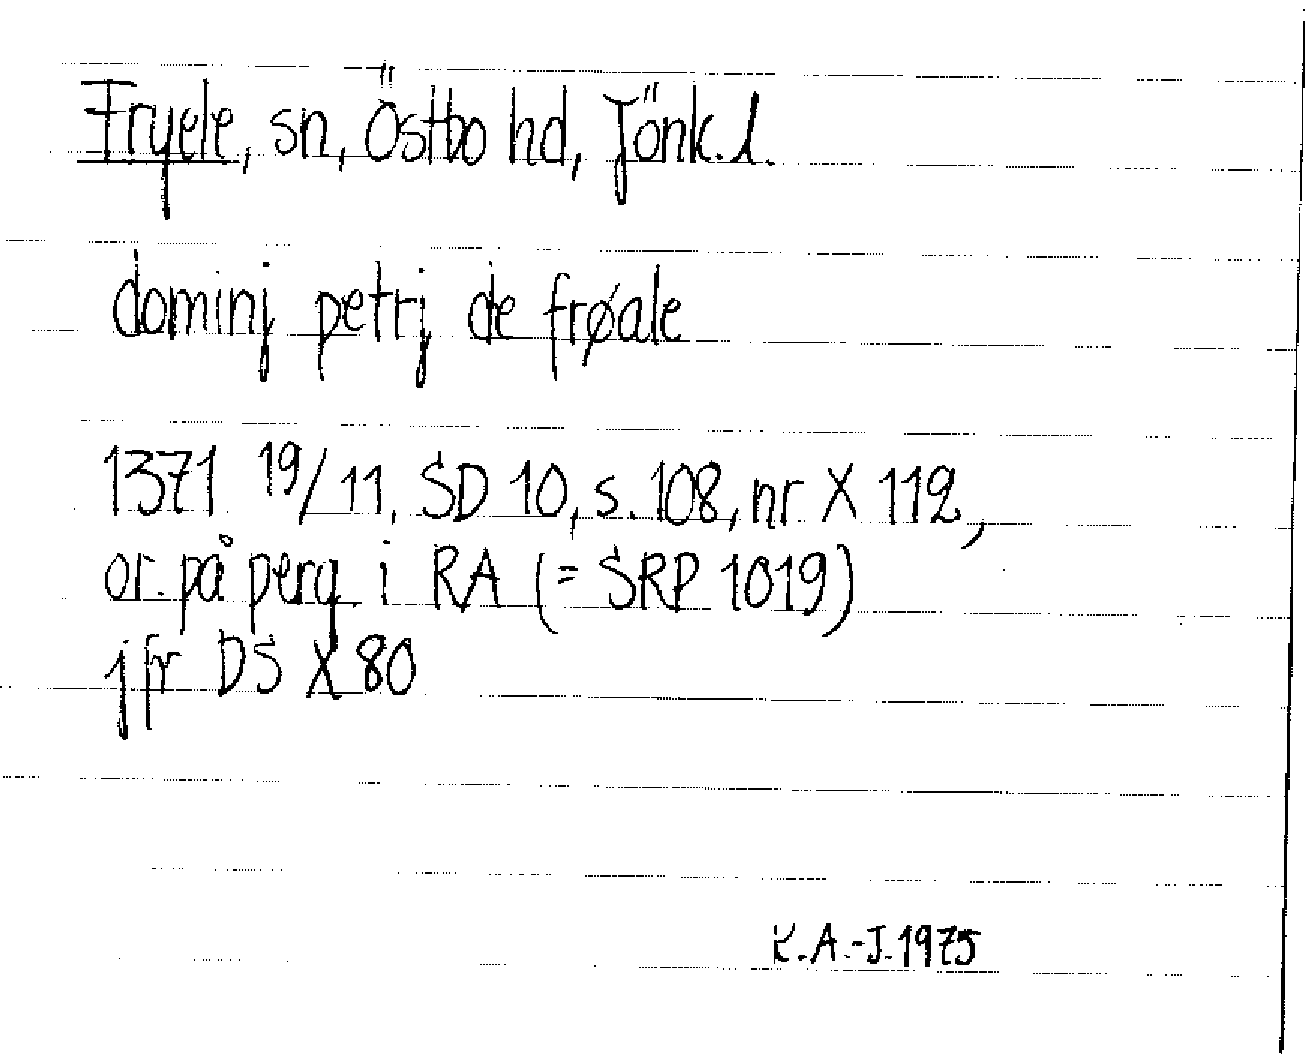 Fryele, sn, Östbo hd, Jönk.l.
dominj petrj de frøale
1371 19/11, SD 10, s. 108, nr X 112,
or. på perg. i RA (= SRP 1019)
jfr DS X 80
K.A.-J. 1975